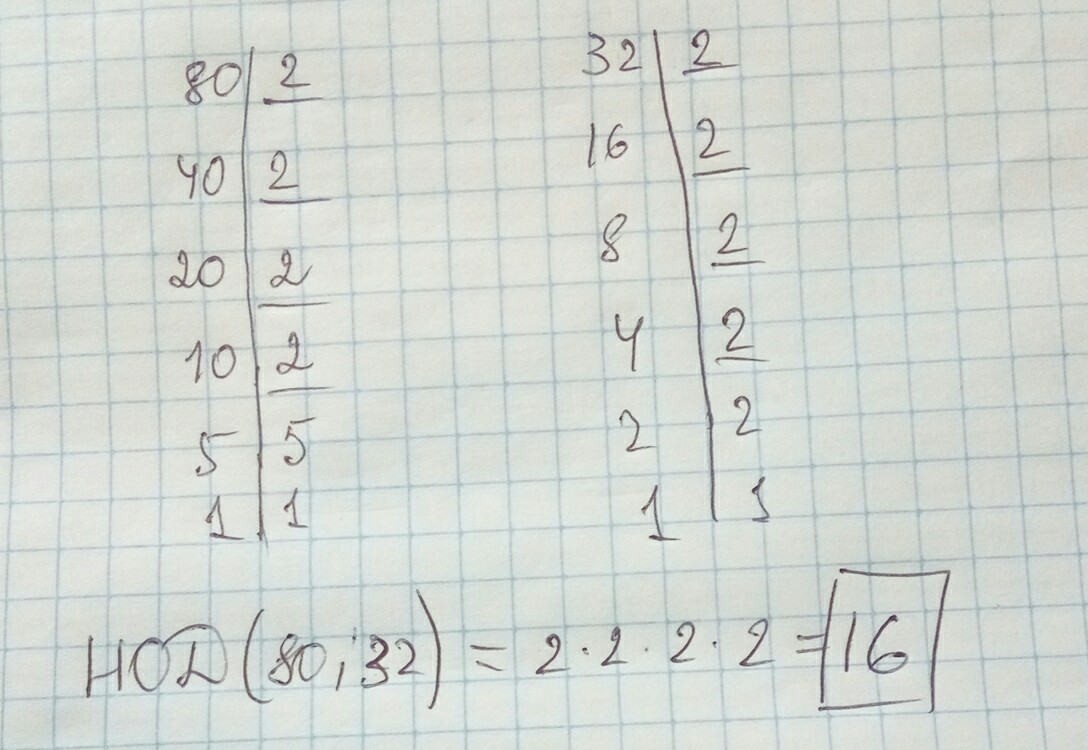 80 | 2
40 | 2
20 | 2
10 | 2
5 | 5
1 | 1
32 | 2
16 | 2
8 | 2
4 | 2
2 | 2
1 | 1
НОД(80;32) = 2·2·2·2 = 16